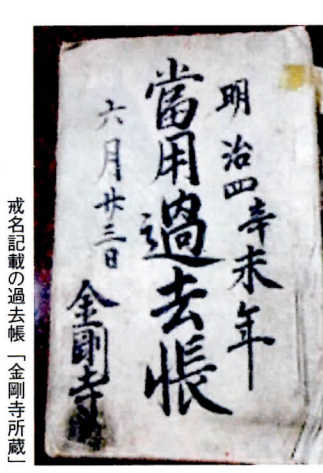 明治四辛未年
當用過去帳
六月廿三日
金剛寺
戒名記載の過去帳「金剛寺所蔵」